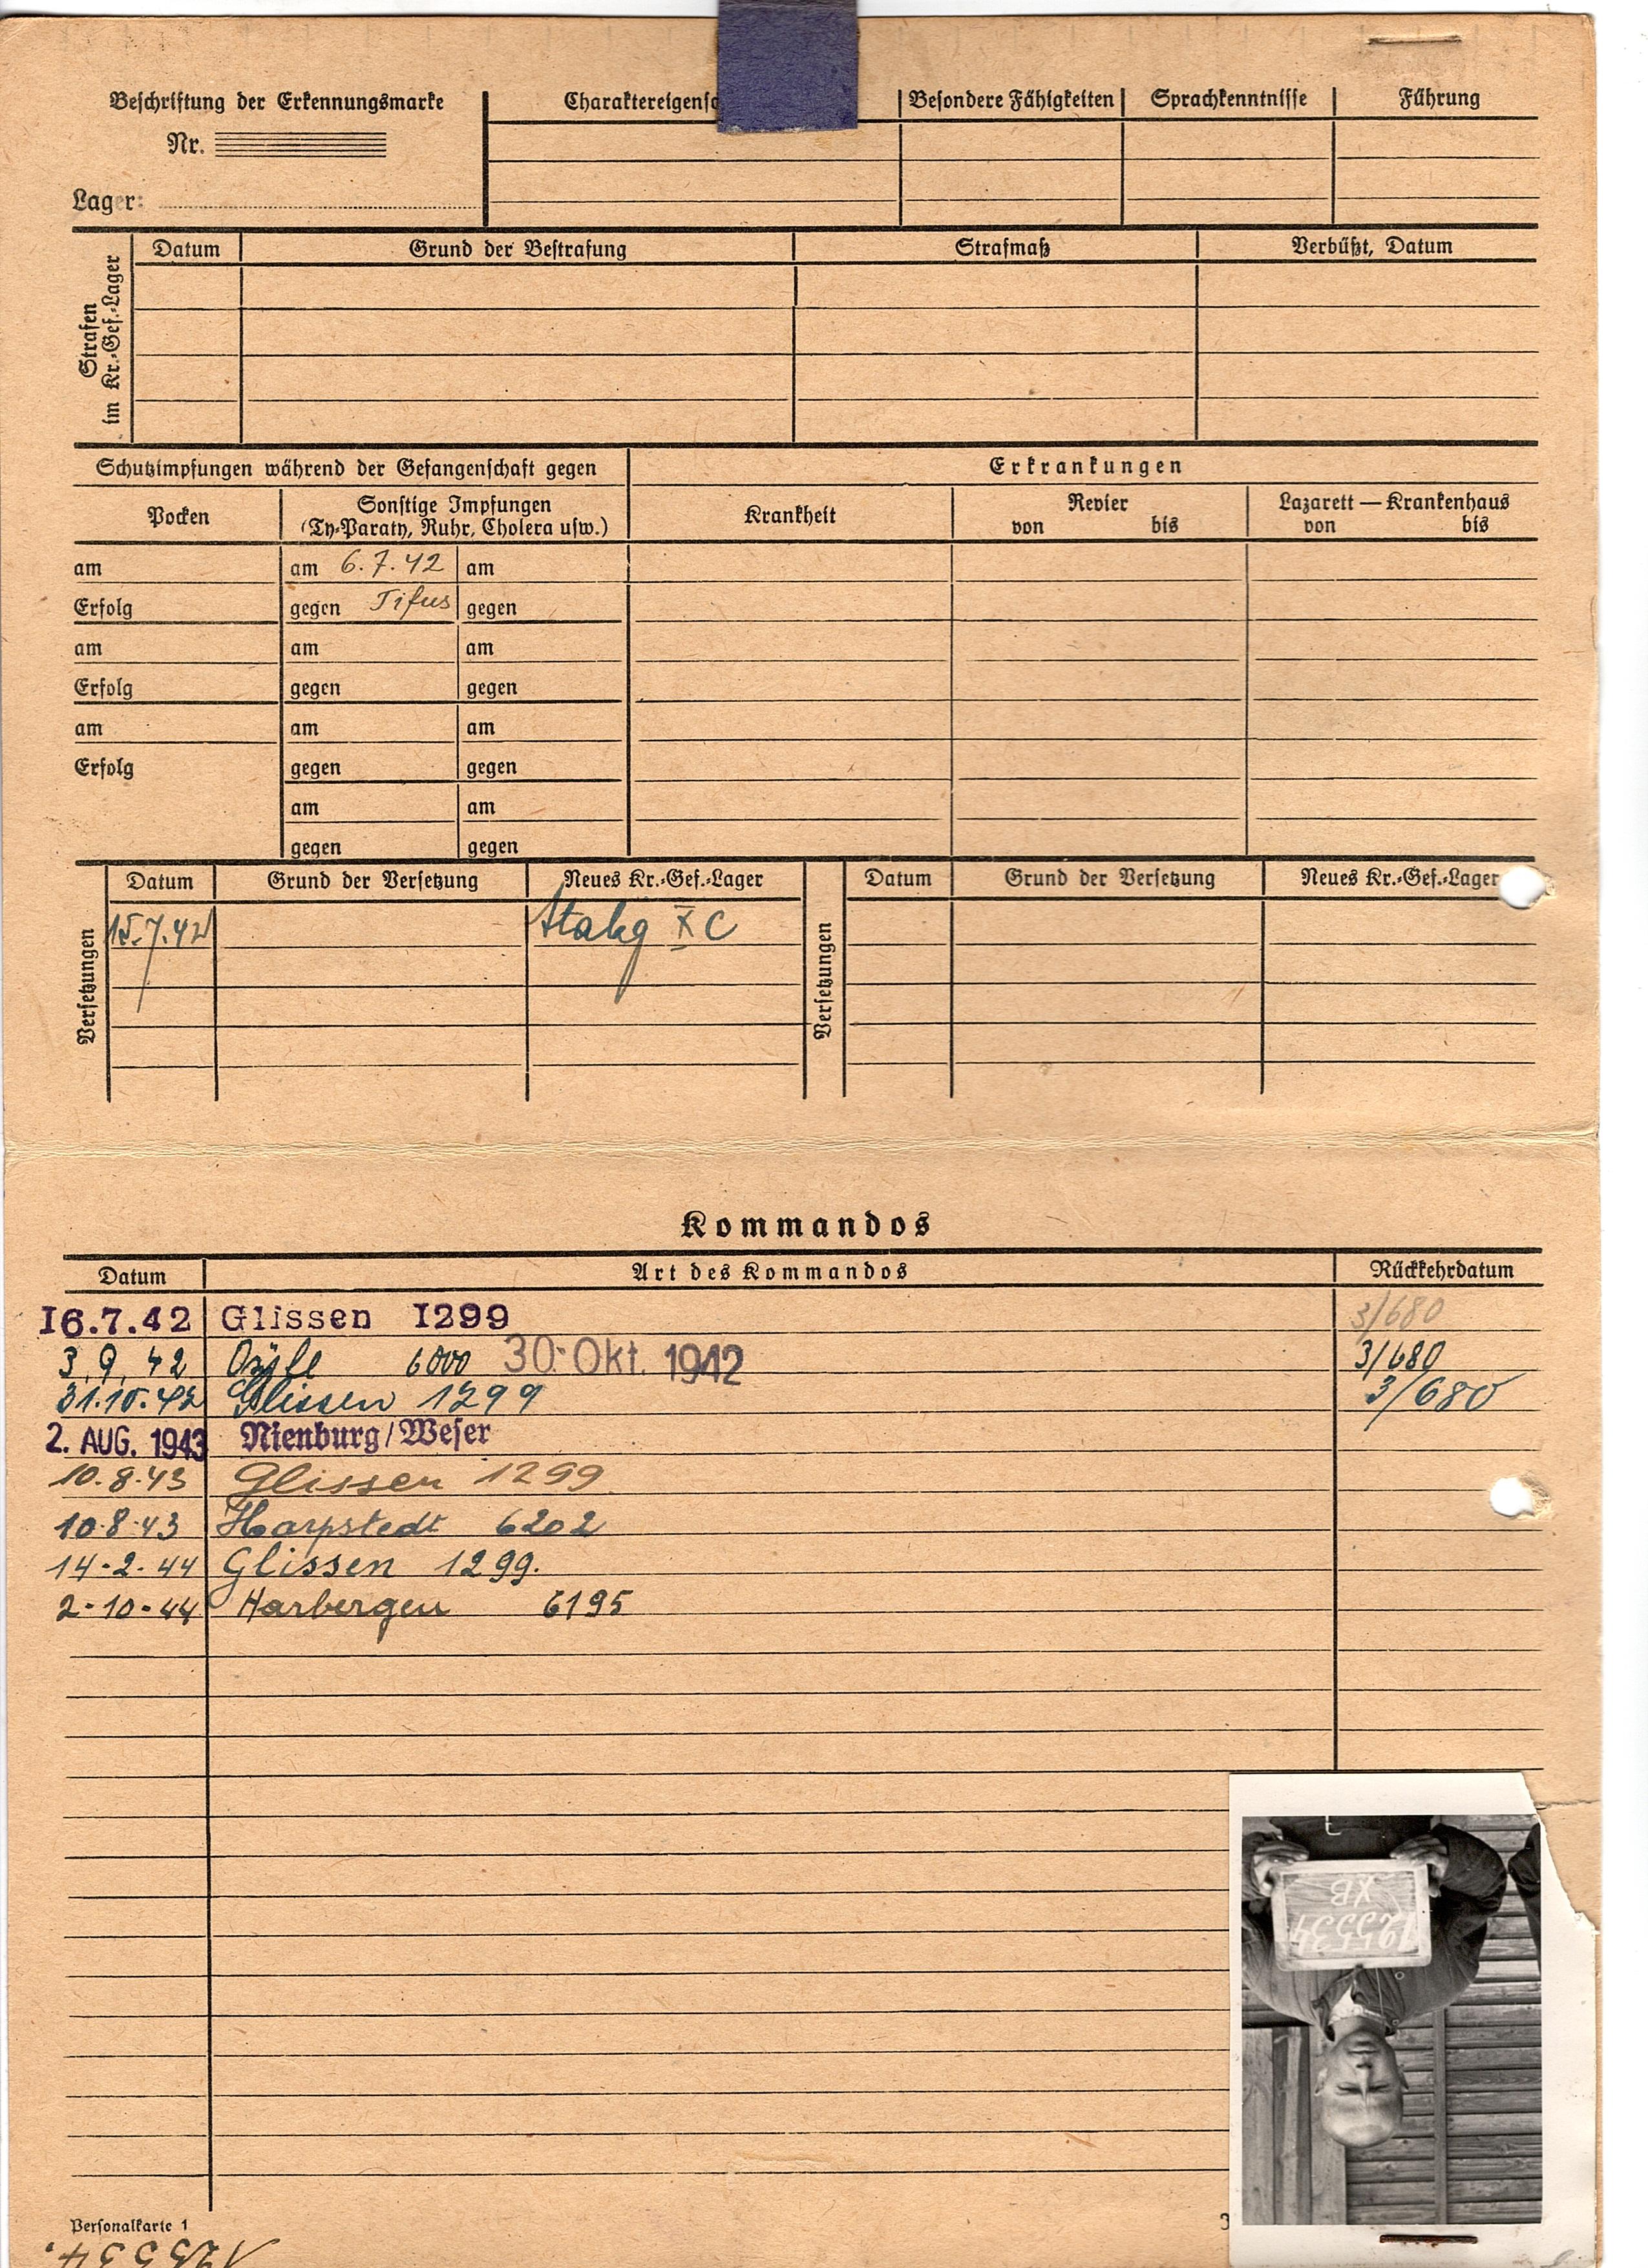 Beschriftung der Erkennungsmarke
Nr.
Lager:
Charaktereigensc
Besondere Fähigkeiten
Sprachkenntnisse
Führung
Strafen
im Kr.-Gef.-Lager
Datum
Grund der Bestrafung
Strafmaß
Verbüßt, Datum
Schutzimpfungen während der Gefangenschaft gegen
Erkrankungen
Pocken
Sonstige Impfungen
(Ty-Paraty, Ruhr, Cholera usw.)
Krankheit
Revier
von bis
Lazarett — Krankenhaus
von bis
am am 6.7.42 am
Erfolg gegen Tifus gegen
am am am
Erfolg gegen gegen
am am am
Erfolg gegen gegen
am am
gegen gegen
Versetzungen
Datum Grund der Versetzung Neues Kr.-Gef.-Lager
15.7.42 Stalag X C
Versetzungen
Datum Grund der Versetzung Neues Kr.-Gef.-Lager
Kommandos
Datum Art des Kommandos Rückkehrdatum
16.7.42 Glissen 1299 3/680
3.9.42 6000 30. Okt. 1942 3/680
31.10.42 Glissen 1299 3/680
2. AUG. 1943 Nienburg/Weser
10.8.43 Glissen 1299
10.8.43 Harpstedt 6202
14.2.44 Glissen 1299.
2-10-44 Harbergen 6195
XB
Personalkarte 1